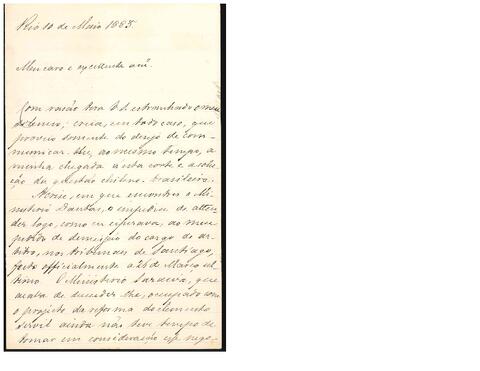 Rio 10 de Maio 1885.
Meu caro e excellente amº
Com rasão terá V. estranhado o meu
silencio; creia, em todo caso, que
proveio somente do desejo de com-
municar-lhe, ao mesmo tempo, a
minha chegada a esta corte e a solu-
ção da questão chileno-brasileira.
A crise, em que encontrei o Mi-
nisterio Dantas, o impediu de atten-
der logo, como eu esperava, ao meu
pedido de demissão do cargo de ar-
bitro, nos tribunaes de Santiago,
feito officialmente a 21 de Março ul-
timo. O Ministerio Saraiva, que
acaba de succeder-lhe, occupado com
o projecto da reforma do elemento
servil ainda não teve tempo de
tomar em consideração esse nego-